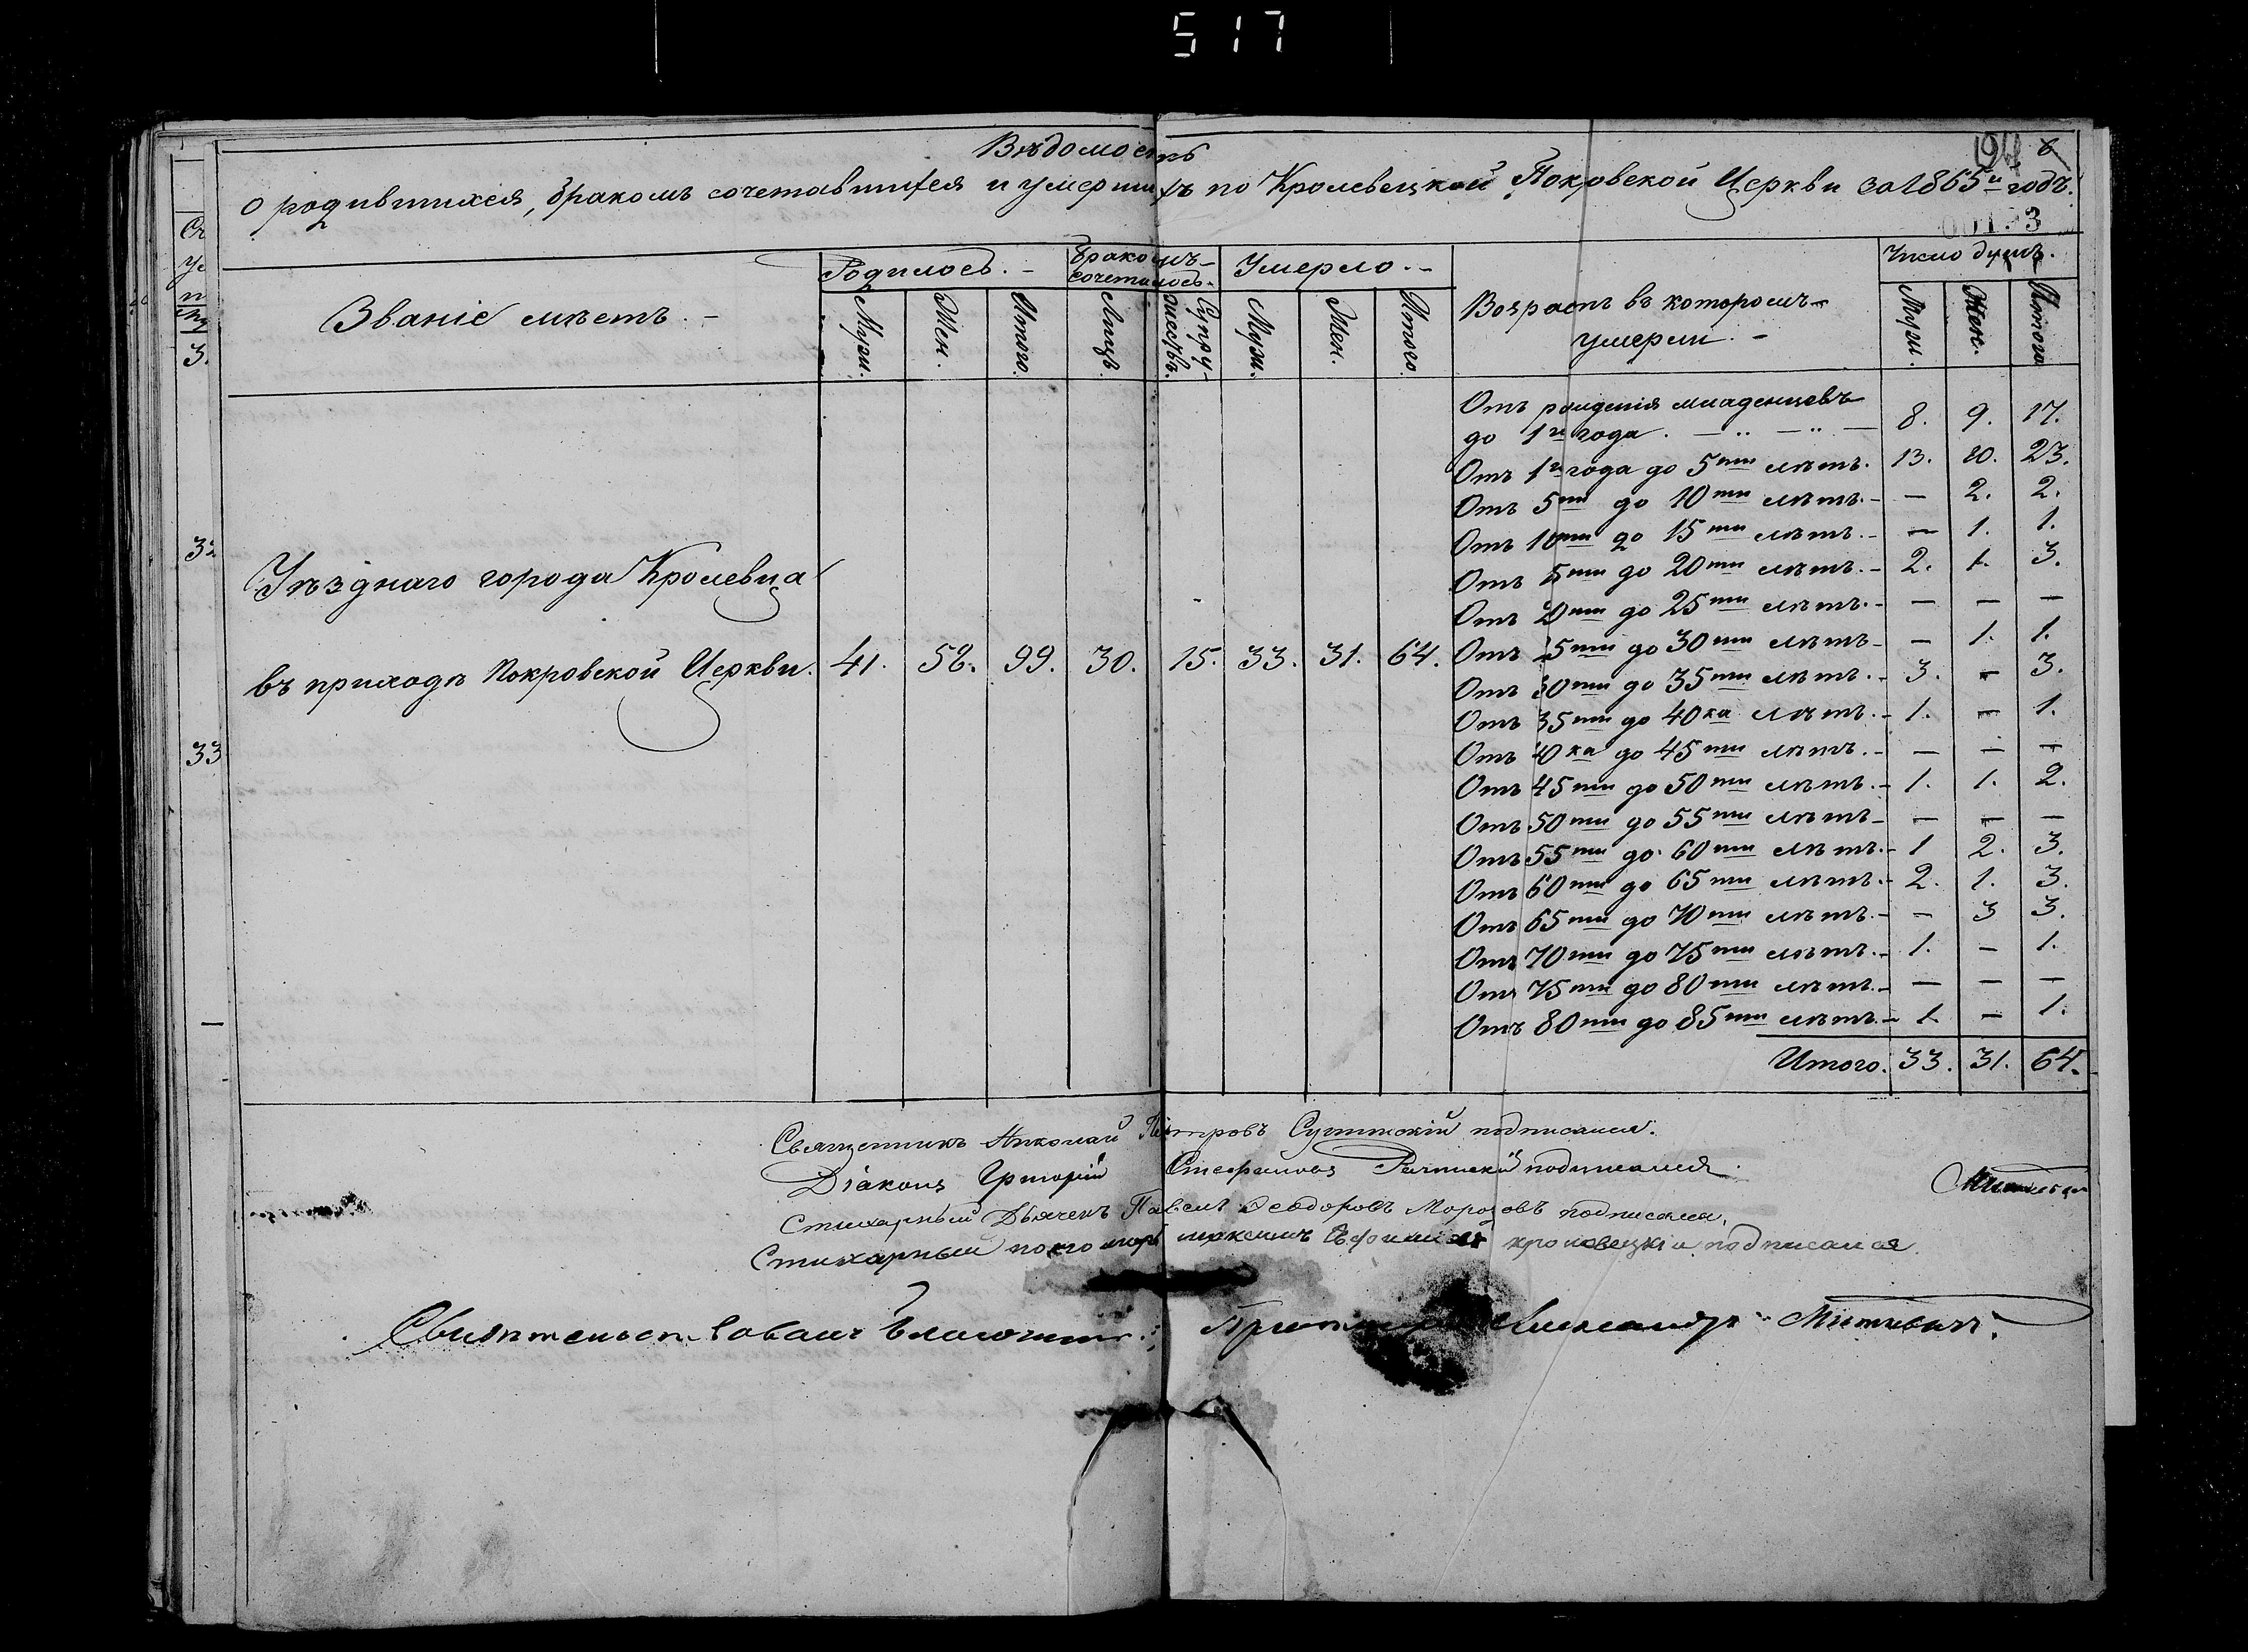 517
Вѣдомость
194
о родившихся, бракомъ сочетавшихся и умершихъ по Кролевецкой Покровской Церкви за 1865й годъ.
Званіе мѣстъ.
Родилось.
Муж. Жен. Итого.
Бракомъ сочеталось.
Лицъ. Супружествъ.
Умерло.
Муж. Жен. Итого.
Возрастъ въ которомъ умерли.
Число душъ.
Муж. Жен. Итого
Уѣзднаго города Кролевца
въ приходѣ Покровской Церкви. 41. 58. 99. 30. 15. 33. 31. 64.
Отъ рожденія младенцевъ
до 1го года. 8. 9. 17.
Отъ 1го года до 5ти лѣтъ. 13. 10. 23.
Отъ 5ти до 10ти лѣтъ. — 2. 2.
Отъ 10ти до 15ти лѣтъ. — 1. 1.
Отъ 15ти до 20ти лѣтъ. 2. 1. 3.
Отъ 20ти до 25ти лѣтъ. — — —
Отъ 25ти до 30ти лѣтъ — 1. 1.
Отъ 30ти до 35ти лѣтъ. 3. — 3.
Отъ 35ти до 40ка лѣтъ. 1. — 1.
Отъ 40ка до 45ти лѣтъ. — — —
Отъ 45ти до 50ти лѣтъ. 1. 1. 2.
Отъ 50ти до 55ти лѣтъ — — —
Отъ 55ти до 60ти лѣтъ. 1 2. 3.
Отъ 60ти до 65ти лѣтъ. 2. 1. 3.
Отъ 65ти до 70ти лѣтъ. — 3 3.
Отъ 70ти до 75ти лѣтъ. 1. — 1.
Отъ 75ти до 80ти лѣтъ. — — —
Отъ 80ти до 85ти лѣтъ. 1. — 1.
Итого. 33. 31. 64.
Священникъ Николай Петровъ подписался.
Діаконъ Григорій Стефановъ подписался.
Стихарный Дьячекъ Павелъ Ѳеодоровъ Морозовъ подписался.
Стихарный пономарь максимъ кролевецкій подписался.
Свидѣтельствовалъ Благочинный Александръ